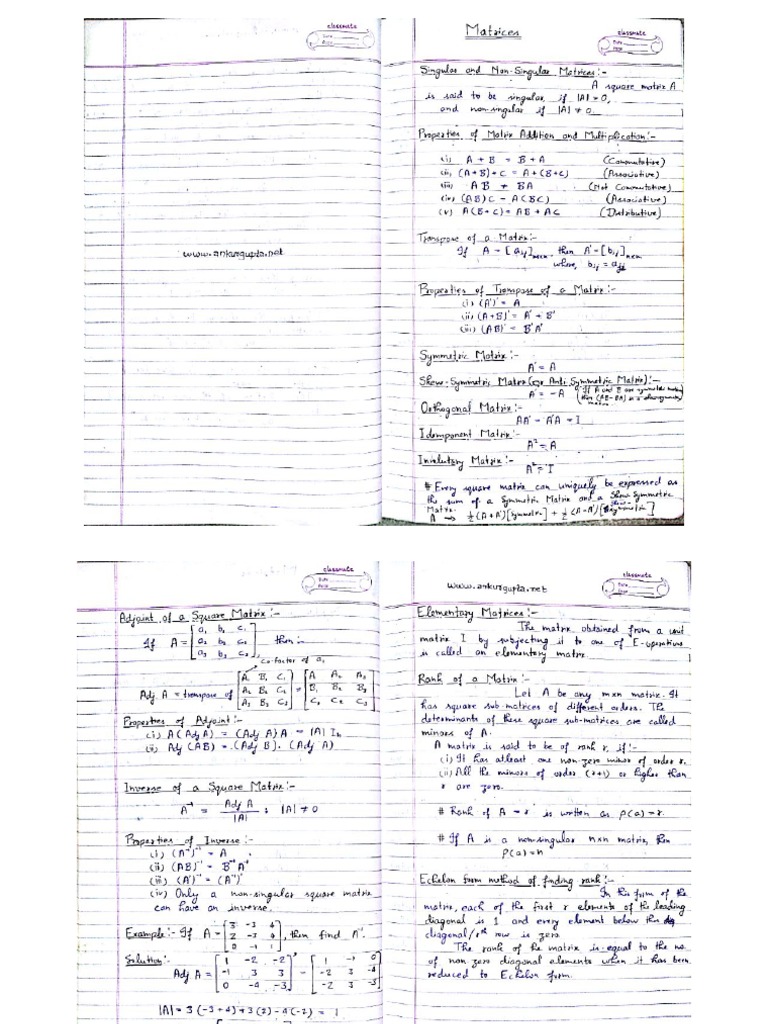 classmate
Date
Page
www.ankurgupta.net
Matrices
classmate
Date
Page
Singular and Non-Singular Matrices:-
A square matrix A
is said to be singular if |A| = 0,
and non-singular if |A| ≠ 0.
Properties of Matrix Addition and Multiplication:-
(i) A + B = B + A (Commutative)
(ii) (A+B)+C = A+(B+C) (Associative)
(iii) AB ≠ BA (Not Commutative)
(iv) (AB)C = A(BC) (Associative)
(v) A(B+C) = AB + AC (Distributive)
Transpose of a Matrix:-
If A = [aij]m×n, then A' = [bij]n×m
where, bij = aji
Properties of Transpose of a Matrix:-
(i) (A')' = A
(ii) (A+B)' = A' + B'
(iii) (AB)' = B'A'
Symmetric Matrix:-
A' = A
Skew-Symmetric Matrix (or Anti Symmetric Matrix):-
A' = -A (If A and B are symmetric matrices then (AB-BA) is a
Orthogonal Matrix:-
AA' = A'A = I
Idemponent Matrix:-
A² = A
Involutory Matrix:-
A² = I
# Every square matrix can uniquely be expressed as
the sum of a Symmetric Matrix and a Skew Symmetric
Matrix.
A → ½(A+A')[Symmetric] + ½(A-A')[Skew-Symmetric]
classmate
Date
Page
Adjoint of a Square Matrix:-
If A = [a₁ b₁ c₁
a₂ b₂ c₂
a₃ b₃ c₃], then:-
Co-factor of a₁
Adj. A = transpose of [A₁ B₁ C₁
A₂ B₂ C₂
A₃ B₃ C₃] = [A₁ A₂ A₃
B₁ B₂ B₃
C₁ C₂ C₃]
Properties of Adjoint:-
(i) A(Adj A) = (Adj A)A = |A| In
(ii) Adj (AB) = (Adj B). (Adj A)
Inverse of a Square Matrix:-
A⁻¹ = Adj A / |A| ; |A| ≠ 0
Properties of Inverse:-
(i) (A⁻¹)⁻¹ = A
(ii) (AB)⁻¹ = B⁻¹A⁻¹
(iii) (A')⁻¹ = (A⁻¹)'
(iv) Only a non-singular square matrix
can have an inverse.
Example:- If A = [3 -3 4
2 -3 4
0 -1 1], then find A⁻¹.
Solution:-
Adj A = [1 -2 -2
-1 3 3
0 -4 -3]' = [1 -1 0
-2 3 -4
-2 3 -3]
|A| = 3(-3+4)+3(2)-4(-2) = 1
www.ankurgupta.net
classmate
Date
Page
Elementary Matrices:-
The matrix obtained from a unit
matrix I by subjecting it to one of E-operations
is called an elementary matrix.
Rank of a Matrix:-
Let A be any m×n matrix. It
has square sub-matrices of different orders. The
determinants of these square sub-matrices are called
minors of A.
A matrix is said to be of rank r, if:-
(i) It has atleast one non-zero minor of order r.
(ii) All the minors of order (r+1) or higher than
r are zero.
# Rank of A = r is written as ρ(a) = r.
# If A is a non-singular n×n matrix, then
ρ(a) = n
Echelon form method of finding rank:-
In this form of the
matrix, each of the first r elements of the leading
diagonal is 1 and every element below the
diagonal/rth row is zero.
The rank of the matrix is equal to the no.
of non zero diagonal elements when it has been
reduced to Echelon form.